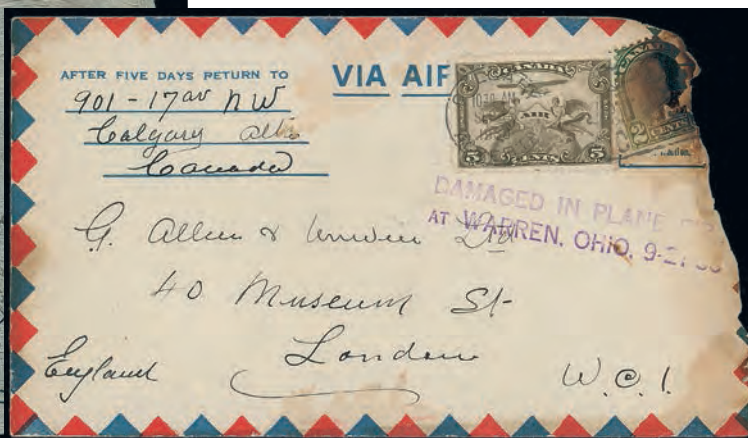 AFTER FIVE DAYS RETURN TO
901 - 17 av NW
Calgary Alta
Canada
VIA AI
CANADA
AIR
5 CENTS 5
CANA
2 CENTS
DAMAGED IN PLANE
AT WARREN, OHIO, 9-2
G. Allen & Unwin Ltd
40 Museum St-
London
England
W.C.1.